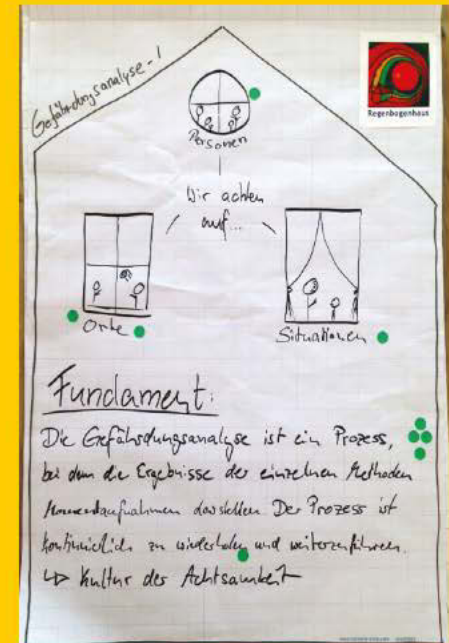 Gefährdungsanalyse - !
Regenbogenhaus
Personen
Wir achten
auf...
Orte
Situationen
Fundament:
Die Gefährdungsanalyse ist ein Prozess,
bei dem die Ergebnisse der einzelnen Methoden
Momentaufnahmen darstellen. Der Prozess ist
kontinuierlich zu wiederholen und weiterzuführen.
↳ Kultur der Achtsamkeit